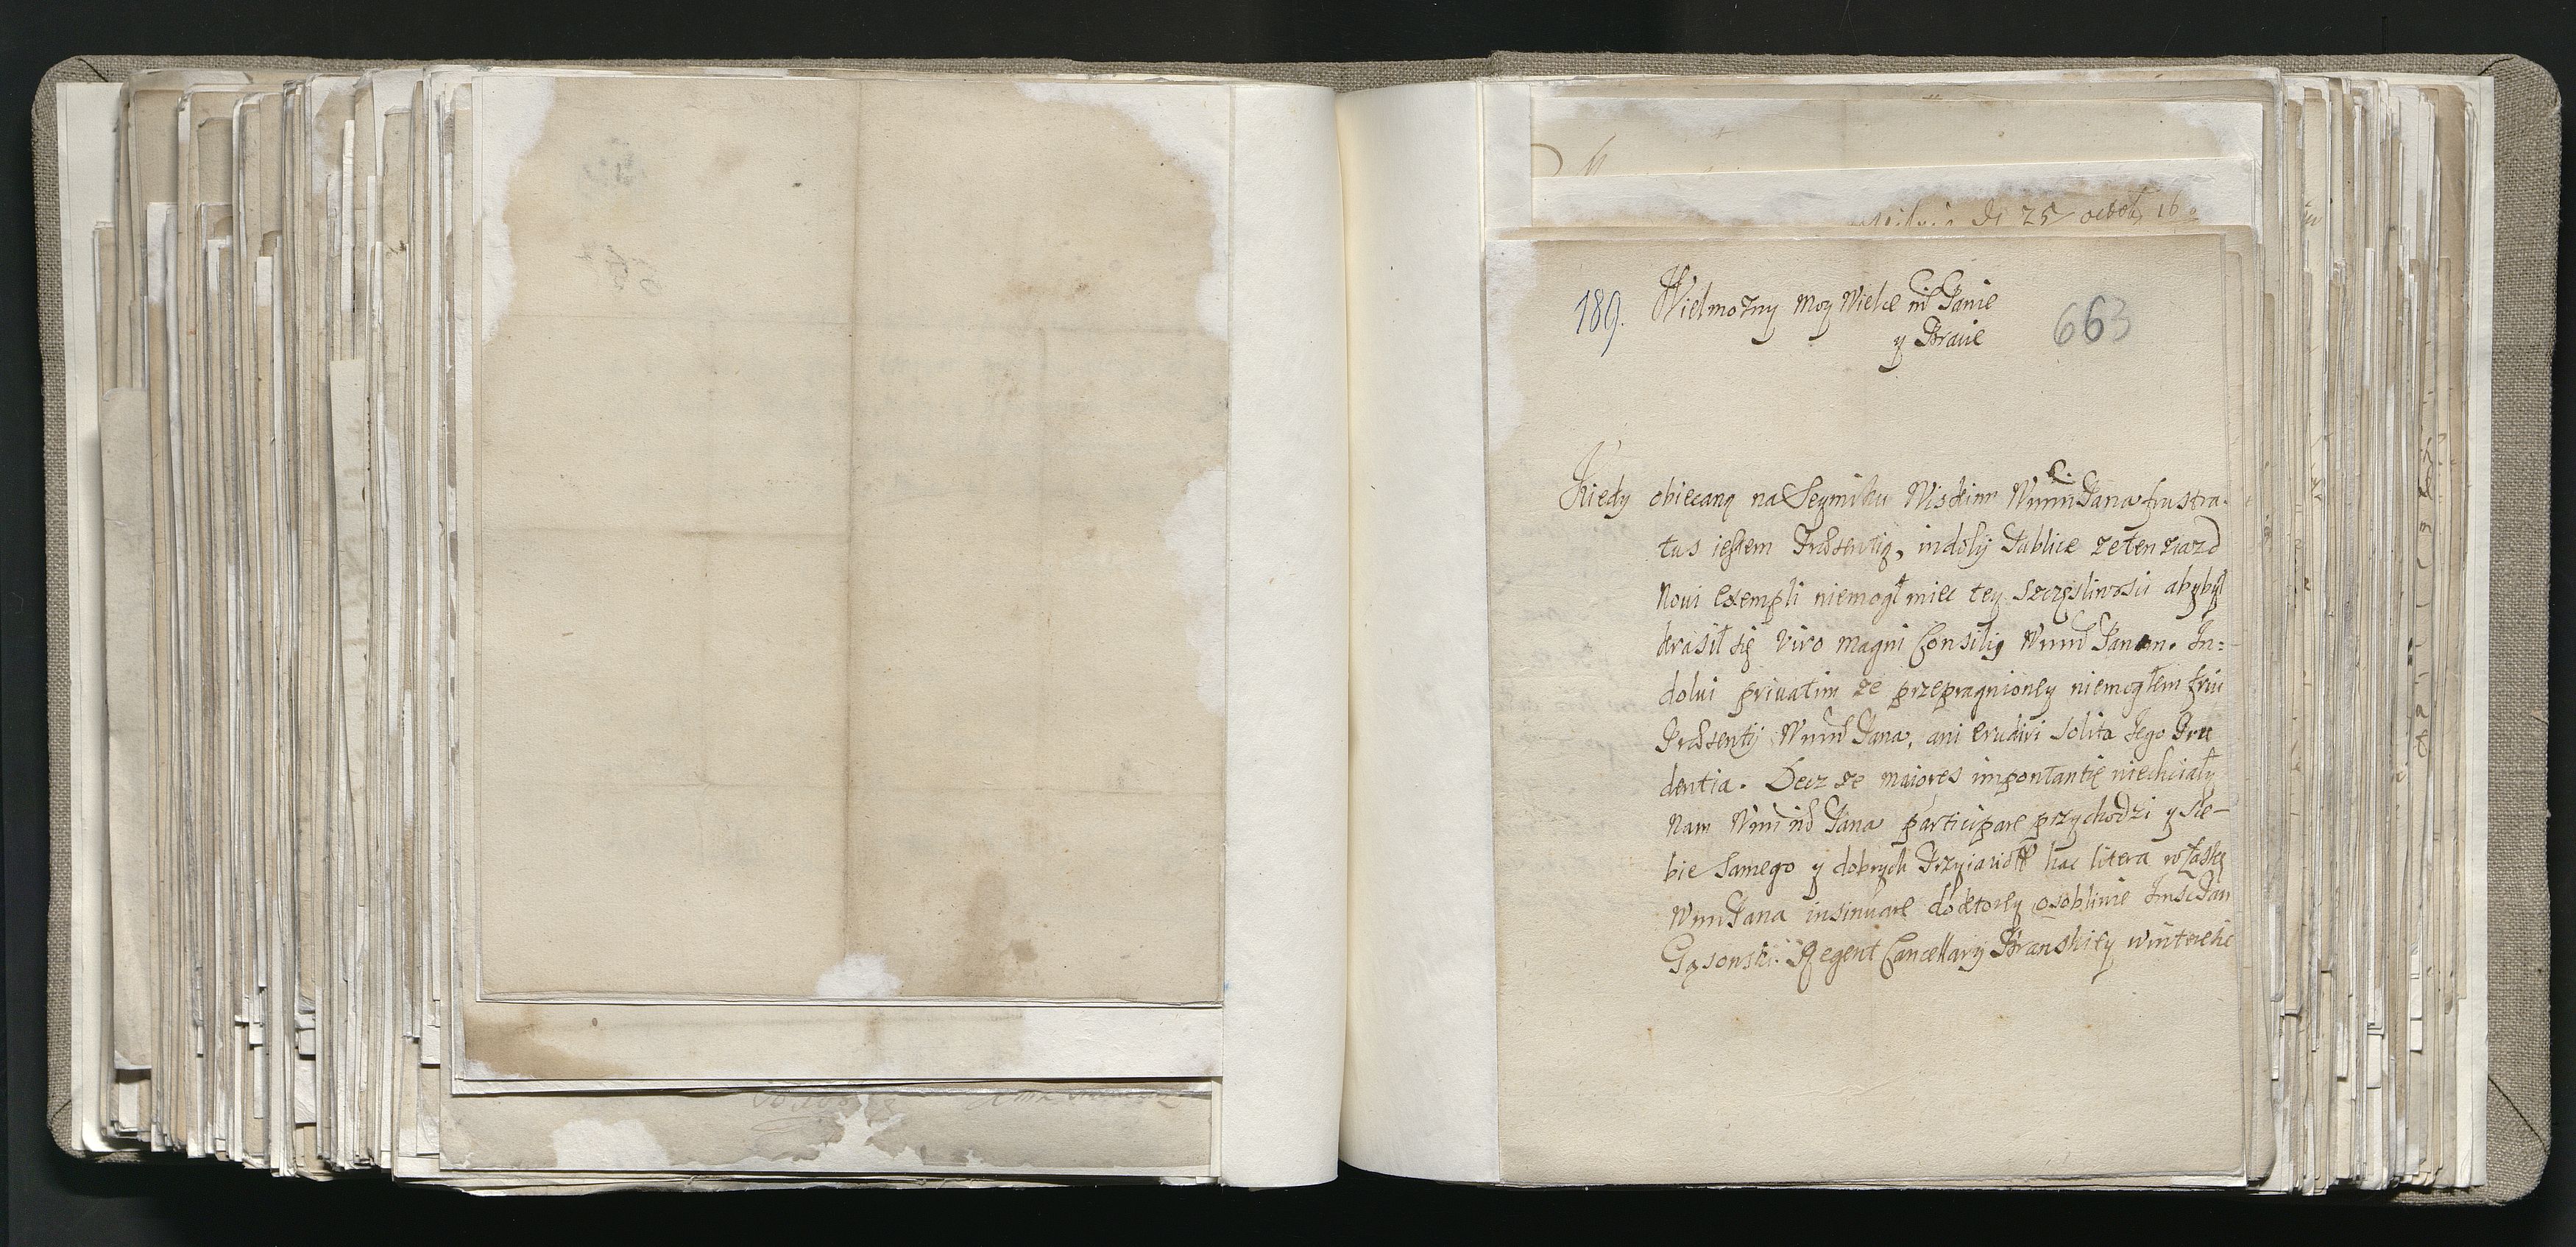 25 octob 16
189. Wielmozny Moy Wielce m Panie 663
y Bracie
Kiedy obiecaną na Seymiku Wiskim Wmm Pana frustra-
tus iestem Præsentią, indolij Publice ze ten ziazd
Noui exempli niemogł miec tey Szczęsliwosci aby był
krasił się Viro Magni Consilij Wmm Panem. In=
dolui priuatim ze przepragnioney niemogłem frui
Præsentij Wmm Pana, ani erudiri Solita Jego Pru
dentia. Lecz ze maiores importantię niechciały
Nam Wmm Pana participare przychodzi y Sie-
bie Samego y dobrych Przyiacioł hac litera w łaskę
Wmm Pana insinuare do ktorey osobliwie Jmsc Pan
Gąsowski Regent Cancellarij Branskiey w interesie